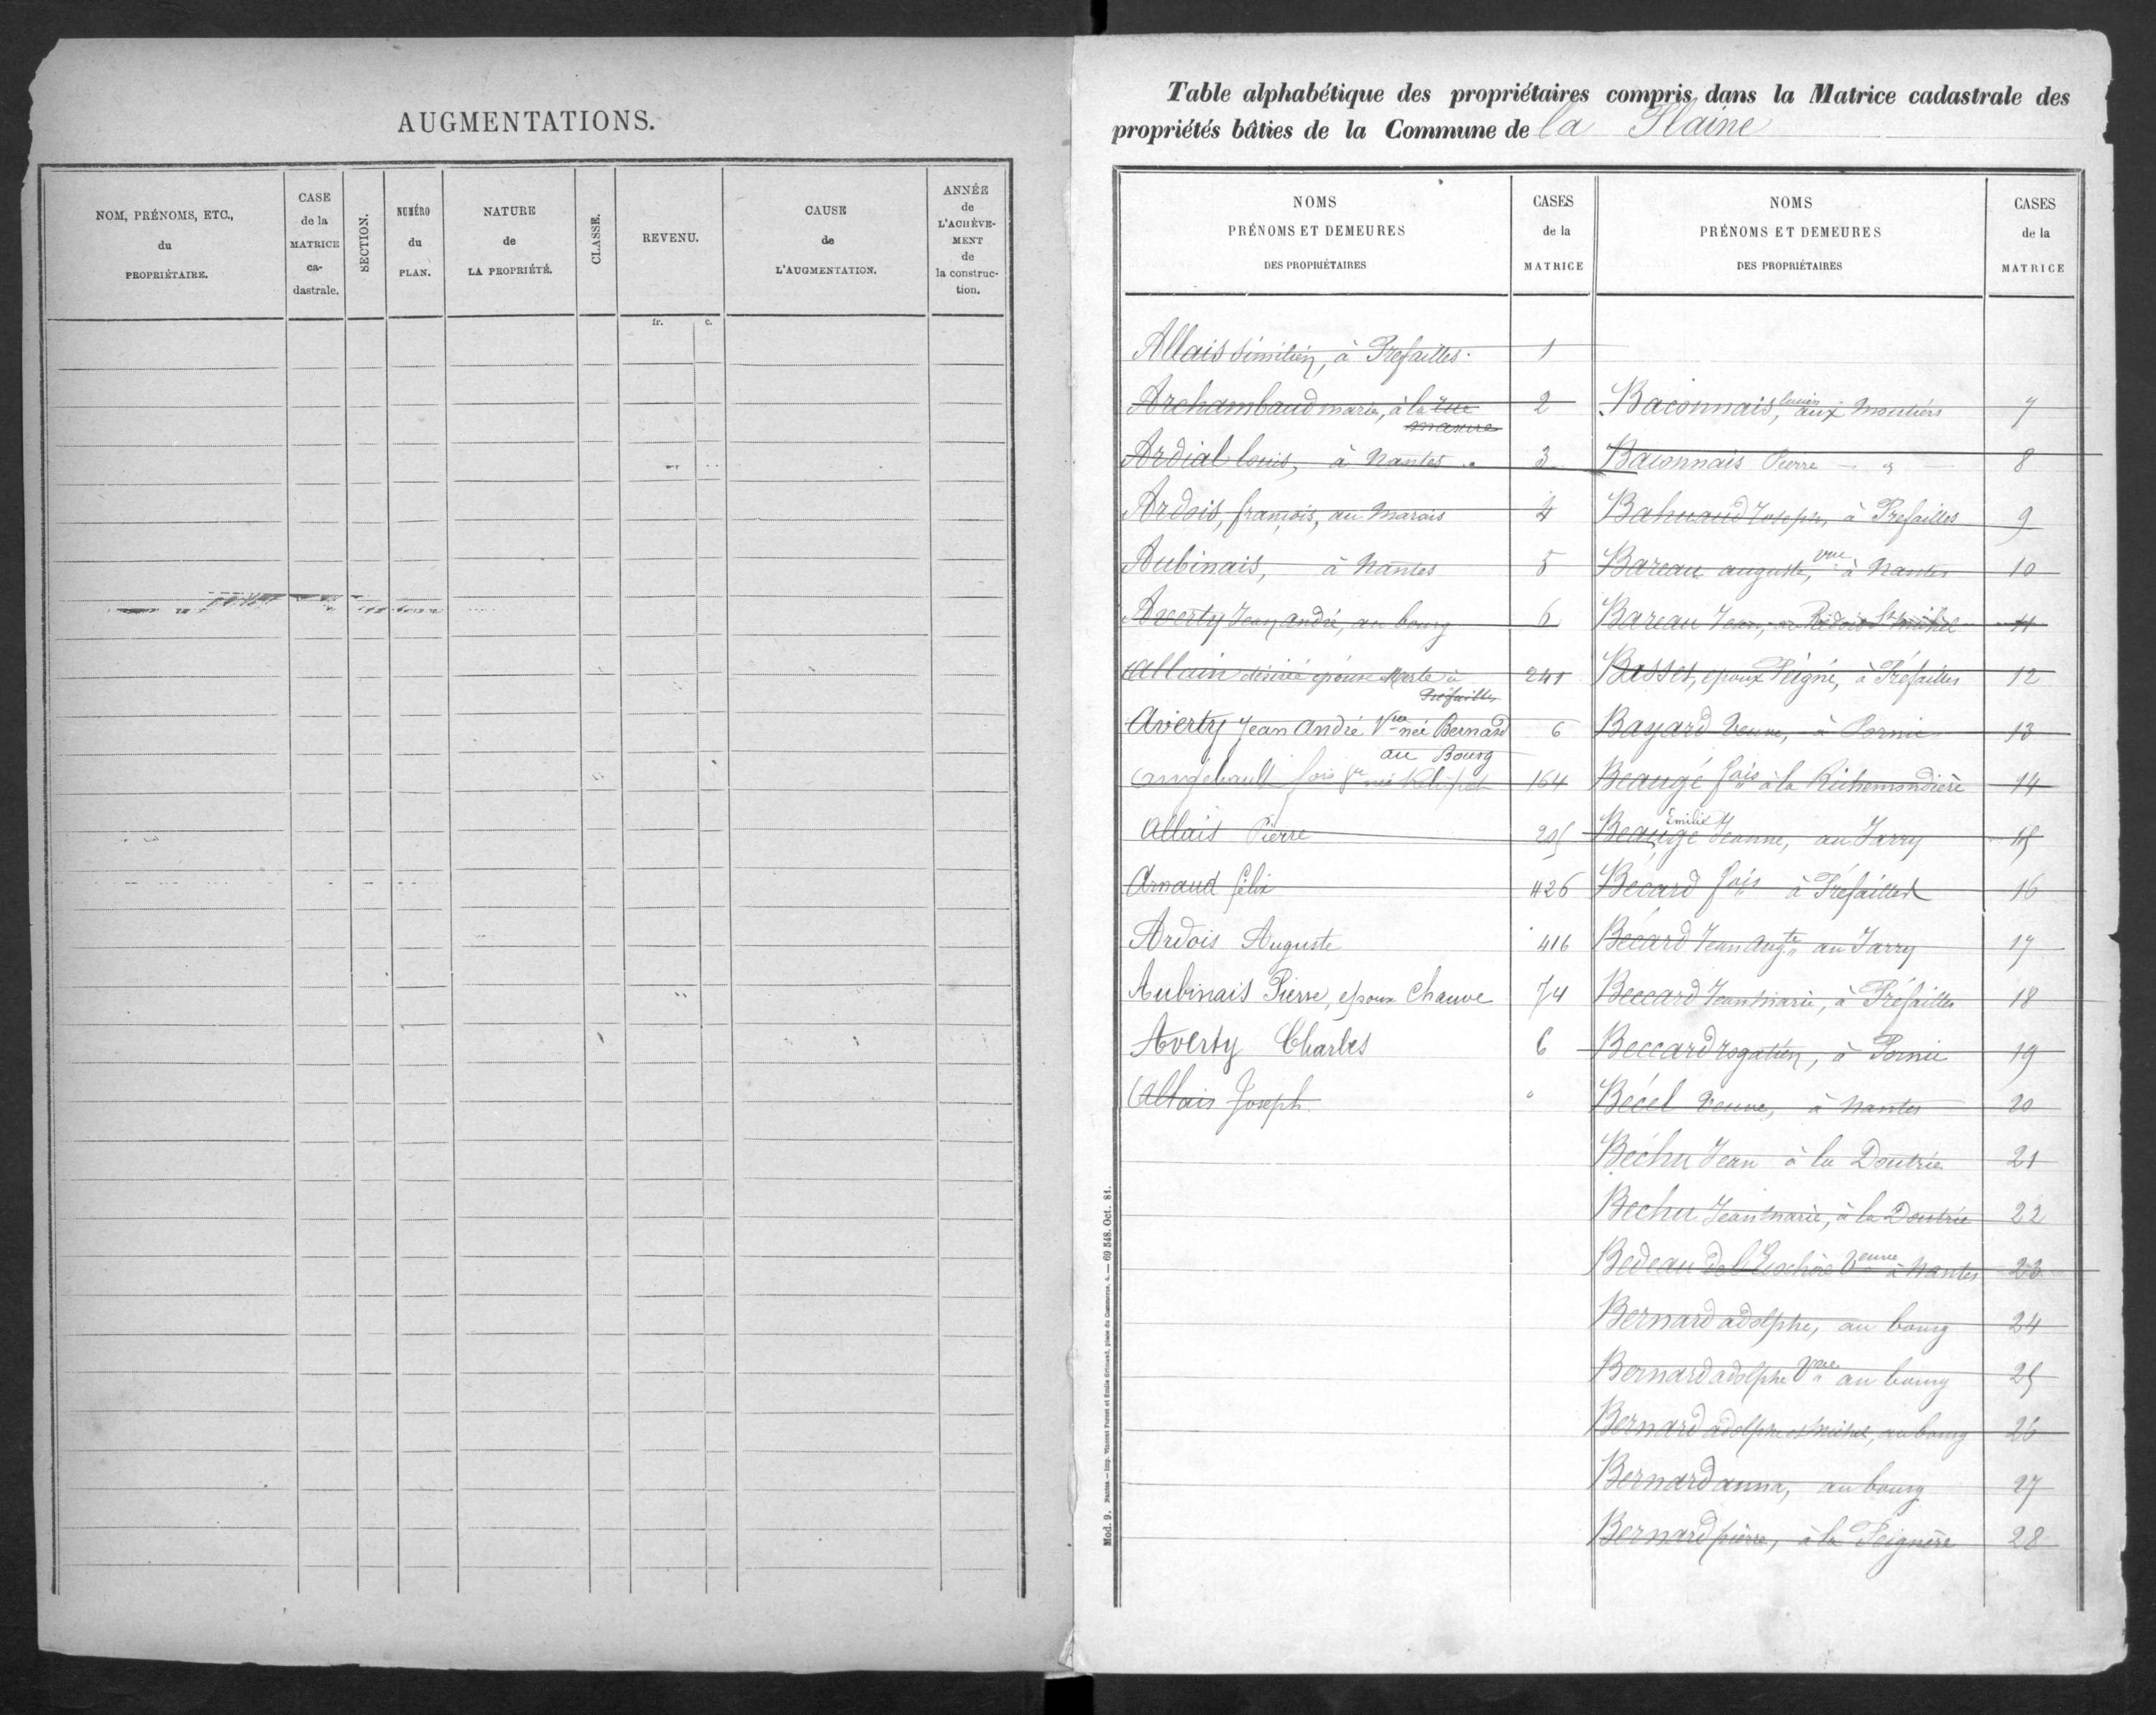 AUGMENTATIONS.
NOM, PRÉNOMS, ETC.,
du
PROPRIÉTAIRE.
CASE
de la
MATRICE
ca-
dastrale.
SECTION.
NUMÉRO
du
PLAN.
NATURE
de
LA PROPRIÉTÉ.
CLASSE.
REVENU.
fr. c.
CAUSE
de
L'AUGMENTATION.
ANNÉE
de
L'ACHÈVE-
MENT
de
la construc-
tion.
Table alphabétique des propriétaires compris dans la Matrice cadastrale des
propriétés bâties de la Commune de la Plaine
NOMS
PRÉNOMS ET DEMEURES
DES PROPRIÉTAIRES
CASES
de la
MATRICE
Allais Similien, à Prefailles. 1
Archambaud marie, à la rue 2
Ardial louis, à Nantes 3
Ardois, françois, au Marais 4
Aubinais, à Nantes 5
Averty Jean andré, au bourg 6
Allain désirée épouse à 241
Préfailles
Averty Jean André Vve née Bernard 6
au Bourg
fois Ve née 164
Allais Pierre 205
Arnaud félix 426
Ardois Auguste 416
Aubinais Pierre, epoux Chauve 74
Averty Charles 6
Allais Joseph "
NOMS
PRÉNOMS ET DEMEURES
DES PROPRIÉTAIRES
CASES
de la
MATRICE
Baconnais, louis aux Moutiers 7
Baconnais Pierre - " - 8
Bahuaud Joseph, à Prefailles 9
Bareau auguste, vve à Nantes 10
Bareau Jean, St michel 11
Basset, epoux Peigné, à Préfailles 12
Bayard Veuve, à Pornic 13
Beaugé fois à la Richemondière 14
Beaugé Emilie Jeanne, au Jarry 15
Bécard fois à Préfailles 16
Bécard Jean Augte au Jarry 17
Beccard Jean marie, à Préfailles 18
Beccard rogatien, à Pornic 19
Bécel Veuve, à Nantes 20
Béchu Jean à la Doutrie 21
Bechu Jean marie, à la Doutrie 22
Bedeau de l'Ecochère Veuve à Nantes 23
Bernard adolphe, au bourg 24
Bernard adolphe Vve au bourg 25
Bernard adolphe et michel, au bourg 26
Bernard anna, au bourg 27
Bernard pierre, à la Peignère 28
Mod. 9. Nantes — Imp. Vincent Forest et Émile Grimaud, place du Commerce, 4. — 69 548. Oct. 81.